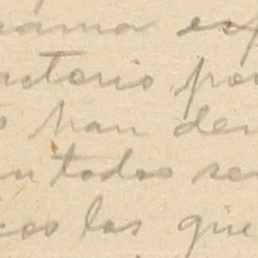 rama esp
acterio por
han der
n todos se
cos las que